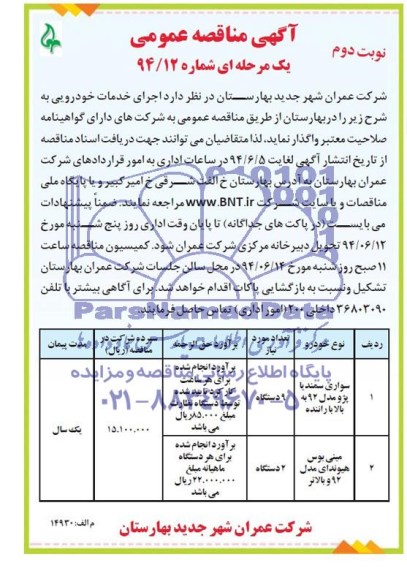 آگهی مناقصه عمومی
نوبت دوم
یک مرحله ای شماره ۹۴/۱۲
شرکت عمران شهر جدید بهارستان در نظر دارد اجرای خدمات خودرویی به
شرح زیر را در بهارستان از طریق مناقصه عمومی به شرکت های دارای گواهینامه
صلاحیت معتبر واگذار نماید. لذا متقاضیان می توانند جهت دریافت اسناد مناقصه
از تاریخ انتشار آگهی لغایت ۹۴/۶/۵ در ساعات اداری به امور قراردادهای شرکت
عمران بهارستان به آدرس بهارستان خ الفت شرقی خ امیرکبیر و یا پایگاه ملی
مناقصات و یا سایت شرکت www.BNT.ir مراجعه نمایند. ضمناً پیشنهادات
می بایست (در پاکت های جداگانه) تا پایان وقت اداری روز پنج شنبه مورخ
۹۴/۰۶/۱۲ تحویل دبیرخانه مرکزی شرکت عمران شود. کمیسیون مناقصه ساعت
۱۱ صبح روز شنبه مورخ ۹۴/۰۶/۱۴ در محل سالن جلسات شرکت عمران بهارستان
تشکیل و نسبت به بازگشایی پاکات اقدام خواهد شد. برای آگاهی بیشتر با تلفن
۳۶۸۰۳۰۹۰ داخلی ۲۰۰ (امور اداری) تماس حاصل فرمایند.
ParsNamadData
پایگاه اطلاع رسانی مناقصه و مزایده
ردیف
نوع خودرو
تعداد مورد نیاز
برآورد حق الزحمه
سپرده شرکت در مناقصه (ریال)
مدت پیمان
۱
سواری سمند یا
پژو مدل ۹۲ به
بالا با راننده
دستگاه
برآورد انجام شده
برای هر ساعت
توسط دستگاه نظارت
مبلغ ۸۵.۰۰۰ ریال
می باشد
۱۵.۱۰۰.۰۰۰
یک سال
۲
مینی بوس
هیوندای مدل
۹۲ و بالاتر
۲ دستگاه
برآورد انجام شده
برای هر دستگاه
ماهیانه مبلغ
۲۲.۰۰۰.۰۰۰ ریال
می باشد
م الف: ۱۴۹۳۰
شرکت عمران شهر جدید بهارستان